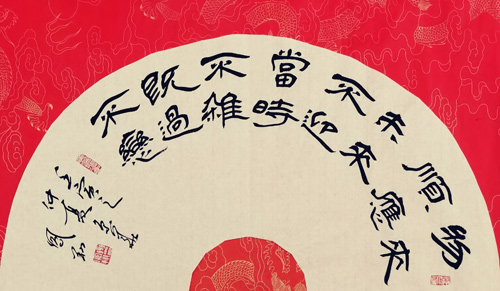 物來
順應
未來
不迎
當時
不雜
既過
不戀
壬寅
仲夏